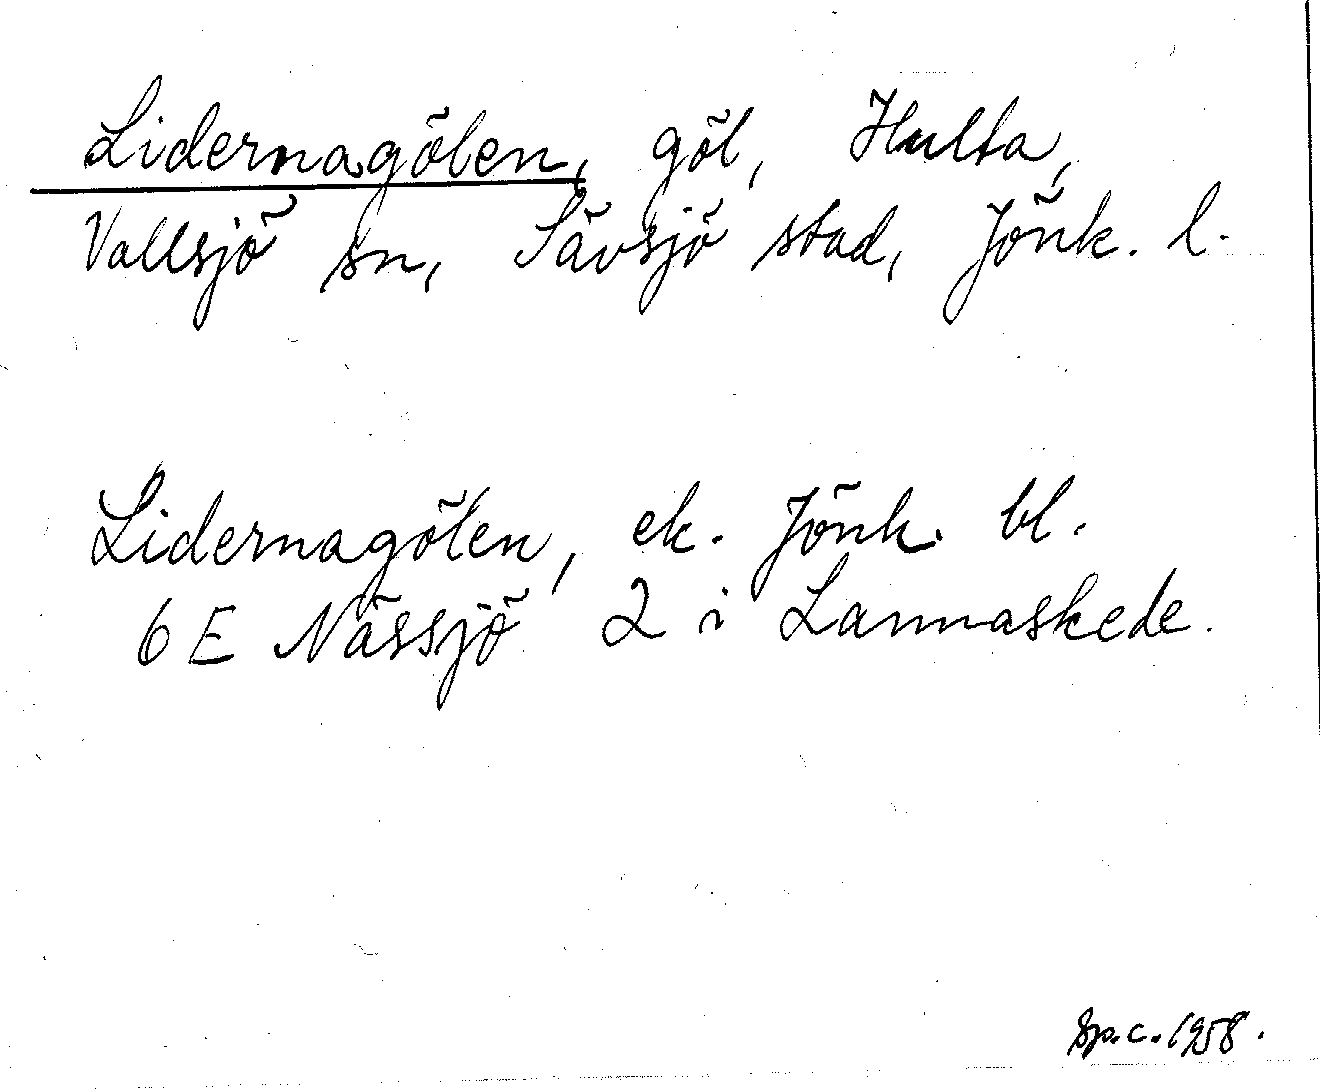 Lidernagölen, göl, Hulta,
Vallsjö sn, Sävsjö stad, Jönk. l.
Lidernagölen, ek. Jönk. bl.
6 E Nässjö 2 i Lannaskede.
Sp.c. 1958.